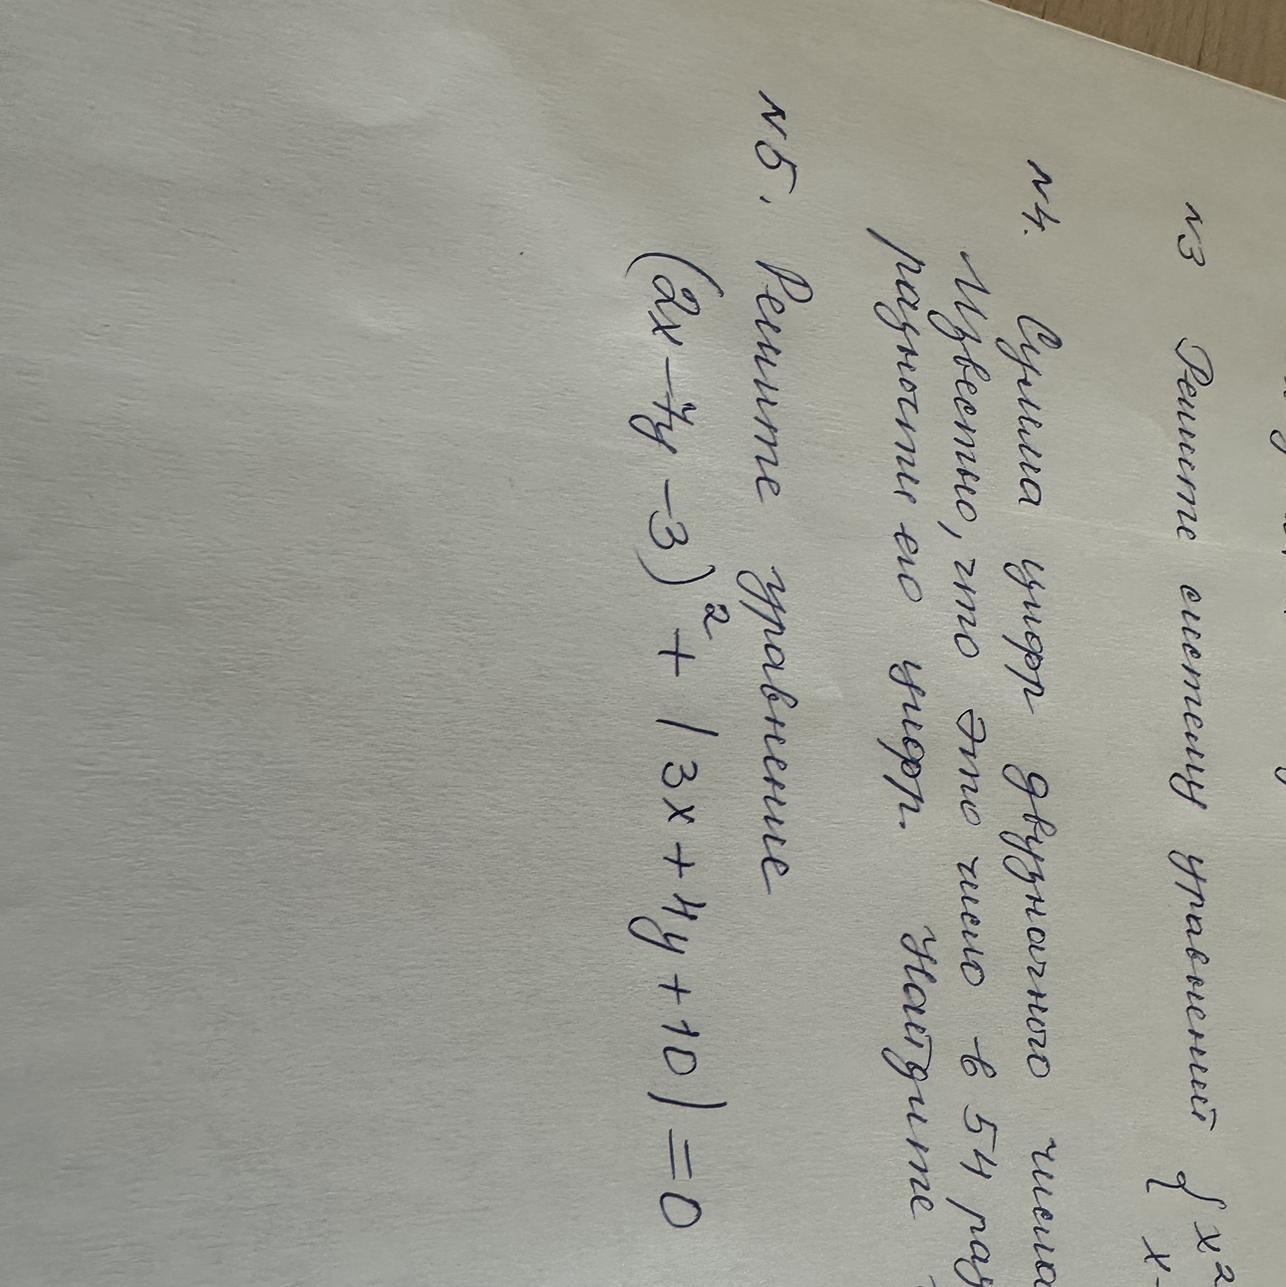 N3 Решите систему уравнений { x²
x
N4. Сумма цифр двузначного числа
Известно, что это число в 54 раз
разности его цифр. Найдите
N5. Решите уравнение
(2x - 7y - 3)² + |3x + 4y + 10| = 0